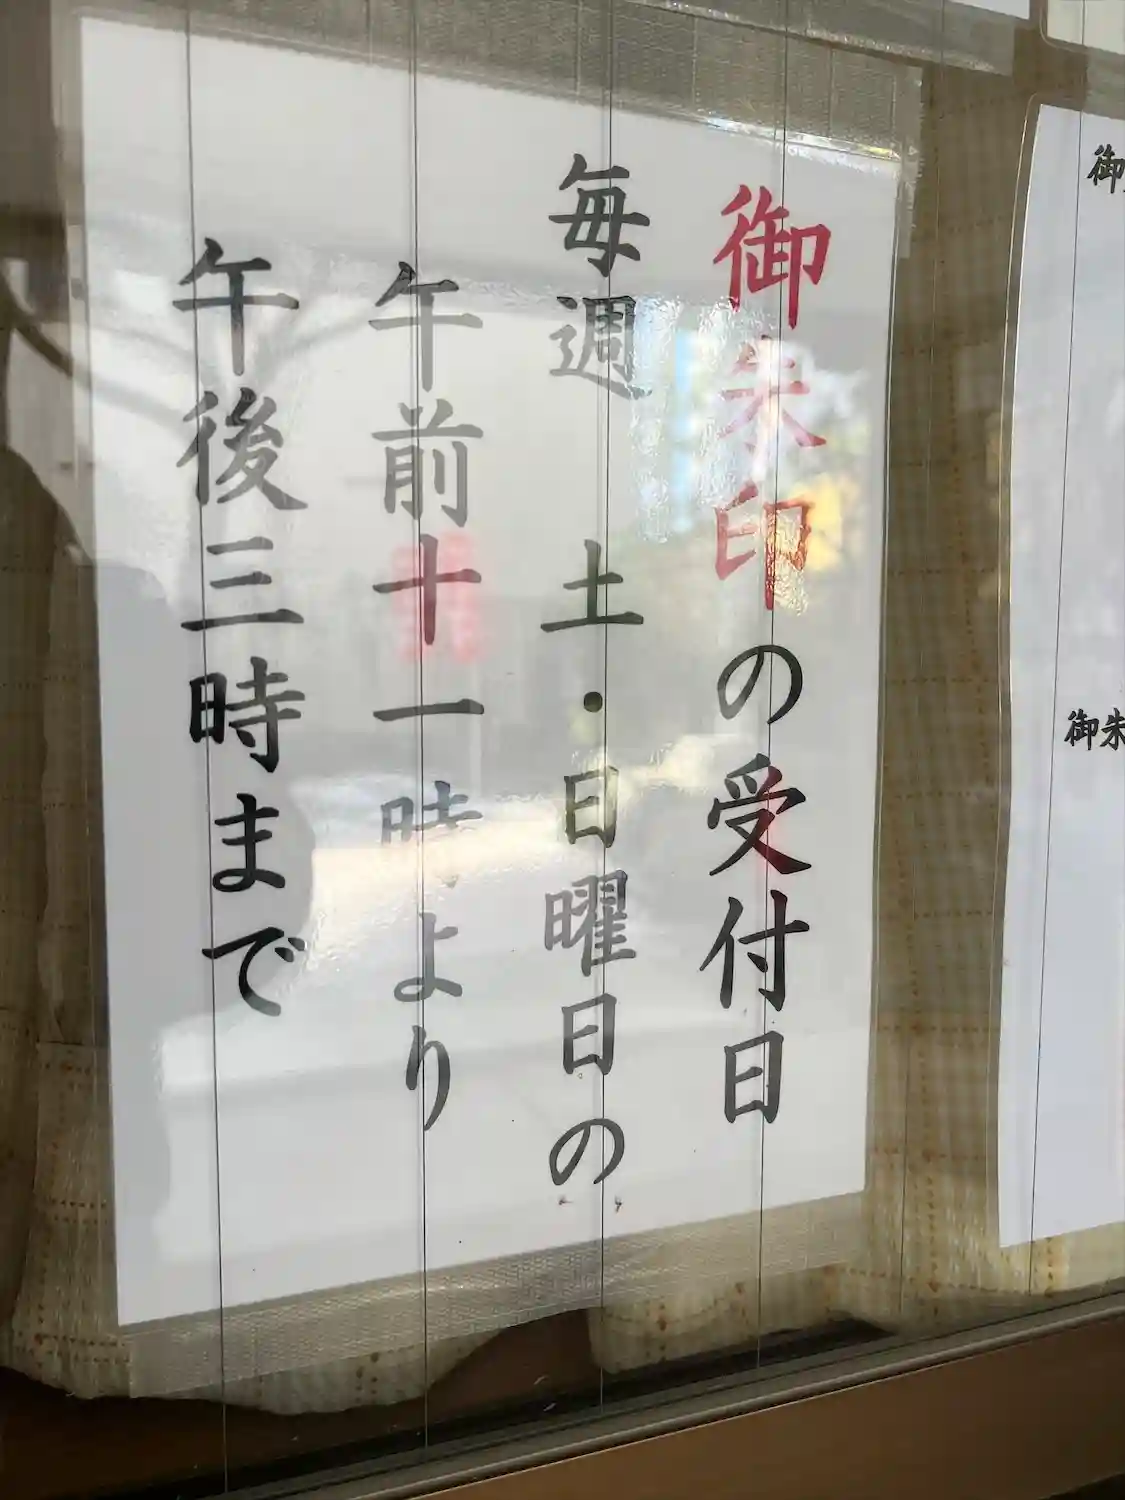 御朱印の受付日
毎週 土・日曜日の
午前十一時より
午後三時まで
御朱